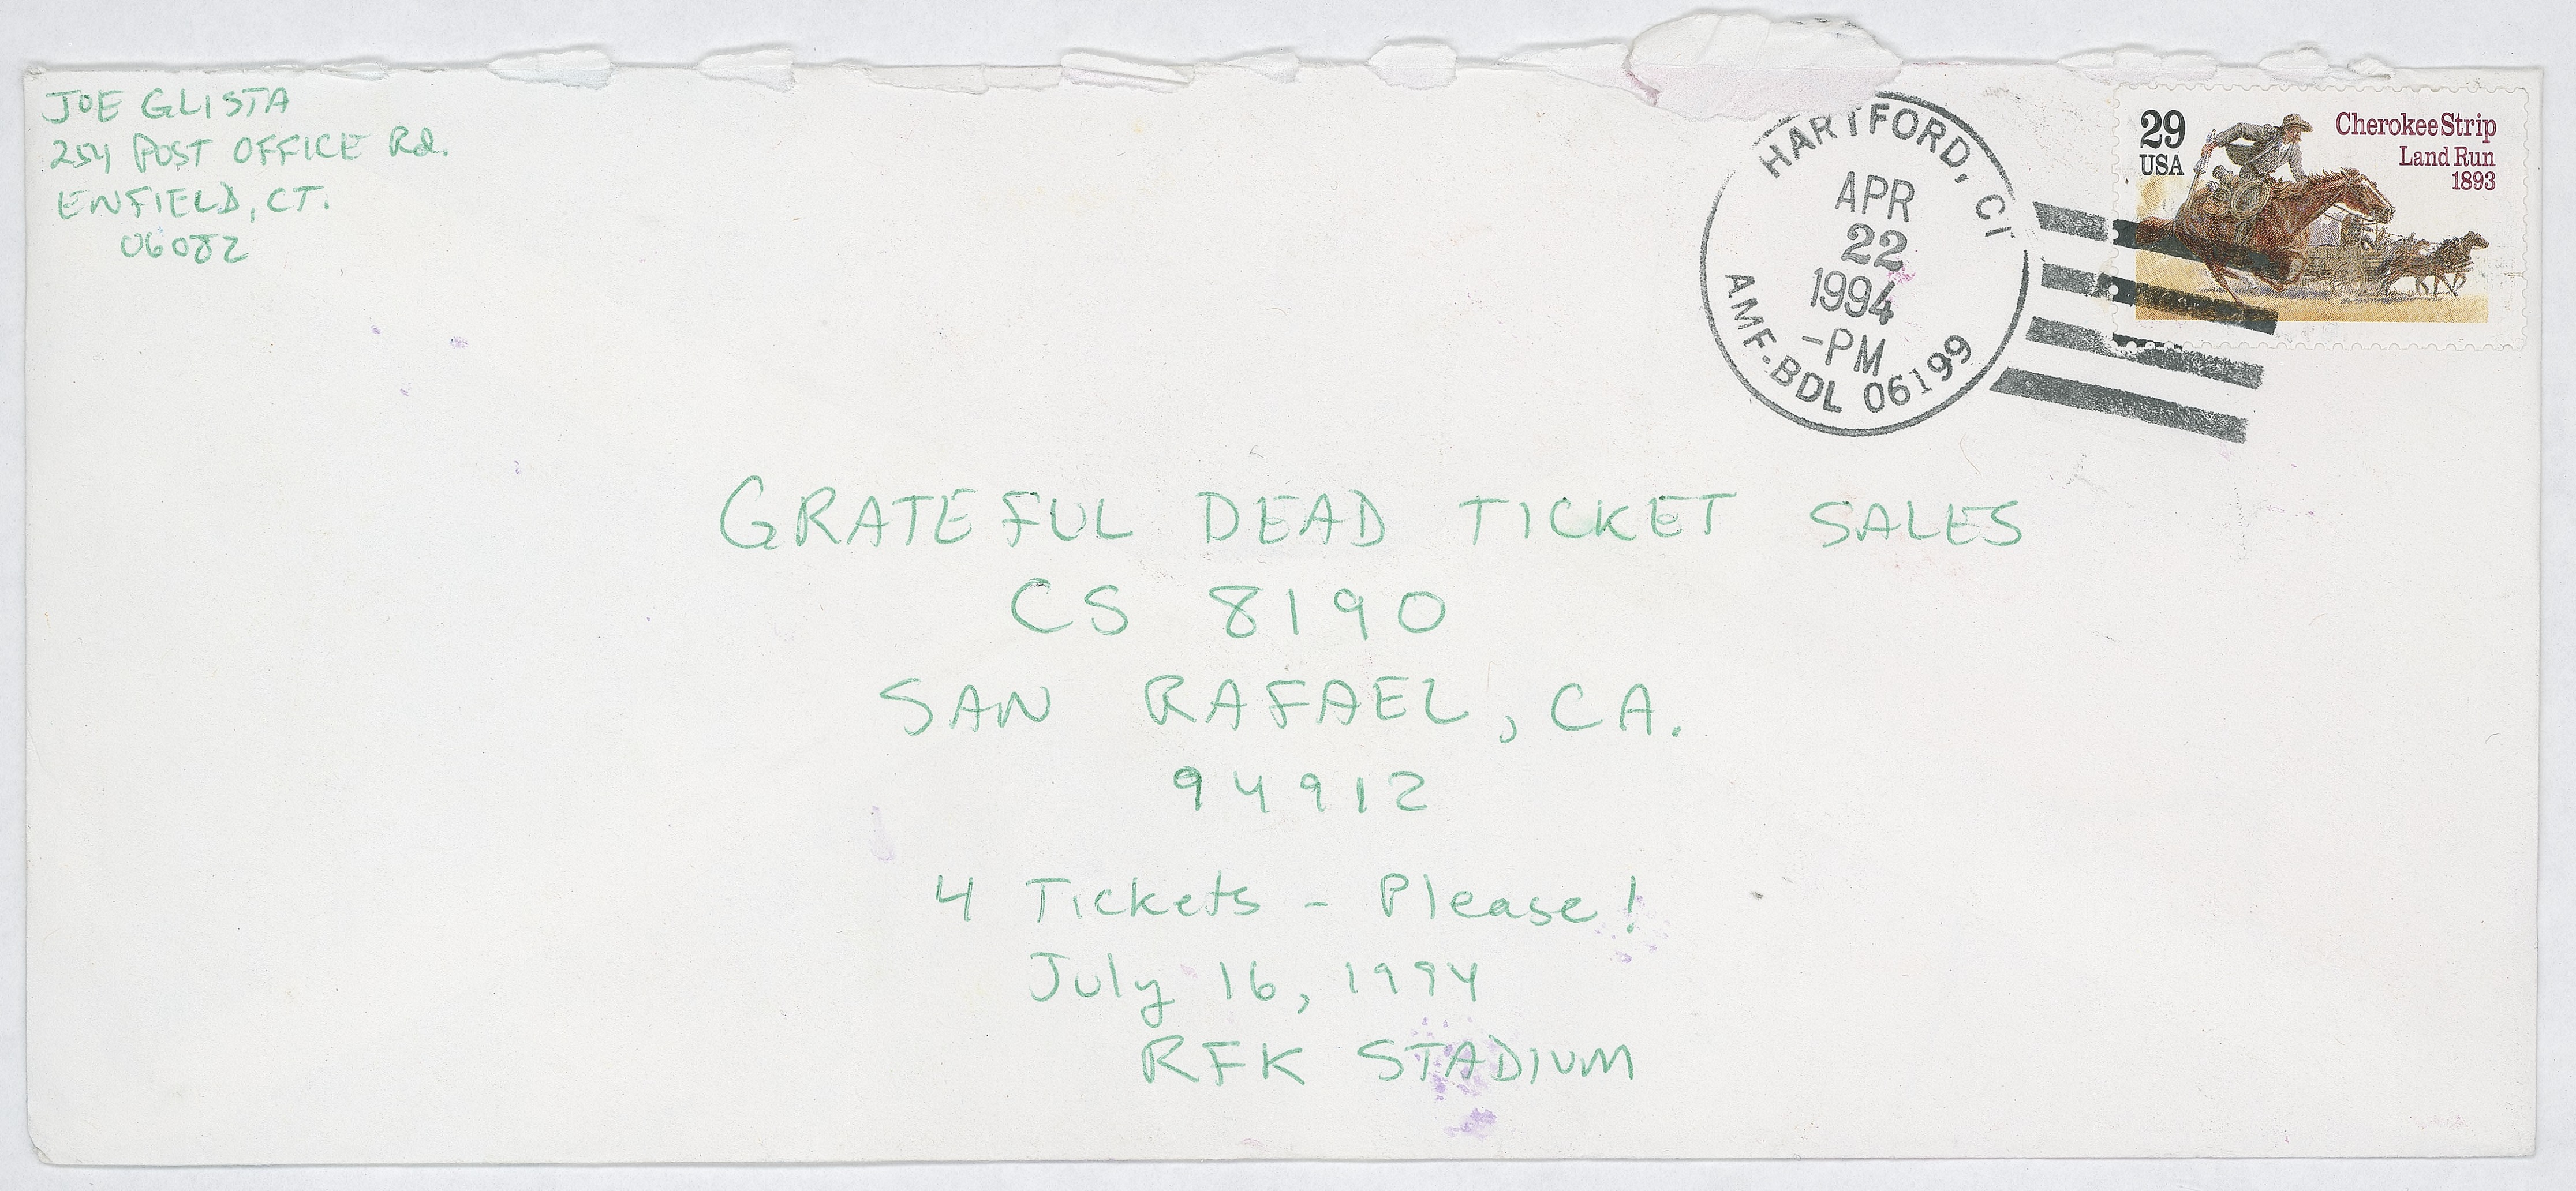 JOE GLISTA
254 POST OFFICE Rd.
ENFIELD, CT.
06082
HARTFORD, CT
APR
22
1994
-PM
AMF-BDL 06199
29
USA
Cherokee Strip
Land Run
1893
GRATEFUL DEAD TICKET SALES
CS 8190
SAN RAFAEL, CA.
94912
4 Tickets - Please!
July 16, 1994
RFK STADIUM